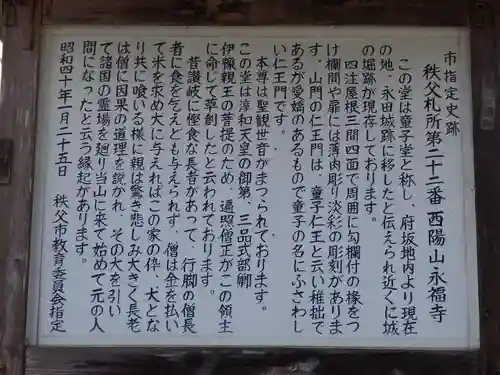 市指定史跡
秩父札所第二十二番 西陽山永福寺
この堂は童子堂と称し、府坂地内より現在
の地、永田城跡に移したと伝えられ近くに城
の堀跡が現存しております。
四注屋根三間四面で周囲に勾欄付の椽をつ
け欄間や扉には薄肉彫り淡彩の彫刻がありま
す。山門の仁王門は、童子仁王と云い稚拙で
あるが愛嬌のあるもので童子の名にふさわし
い仁王門です。
本尊は聖観世音がまつられております。
この堂は淳和天皇の御弟、三品式部卿
伊豫親王の菩提のため、遍照僧正がこの領主
に命じて草創したと云われております。
昔讃岐に慳貪な長者があって、行脚の僧長
者に食を乞えども与えられず、僧は金を払い
て米を求め大に与えればこの家の倅、犬とな
り共に喰いる様に親は驚き悲しみ大きく長老
は僧に因果の道理を説かれ、その犬を引い
て諸国の霊場を廻り当山に来て始めて元の人
間になったと云う縁起があります。
昭和四十年一月二十五日
秩父市教育委員会指定